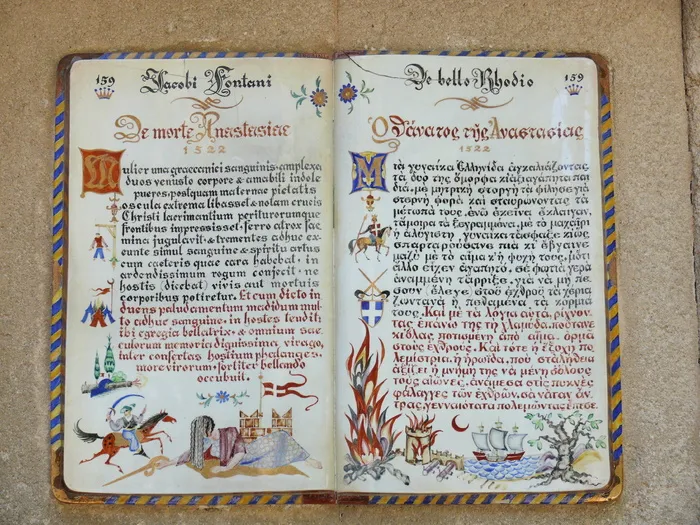 159 Jacobi Fontani
De morte Anastasiae
1522
Mulier una graecanici sanguinis·amplexa
duos venusto corpore & amabili indole
pueros·postquam maternae pietatis
oscula extrema libasset & notam crucis
Christi lacrimantium periturorumque
frontibus impressisset·ferro atrox fae
mina jugulavit·& trementes adhuc ex
eunte simul sanguine & spiritu artus
cum caeteris quae cara habebat·in
ardendissimum rogum conjecit·ne
hostis (dicebat) vivis aut mortuis
corporibus potiretur. Et cum dicto in
duens paludamentum madidum mul
to adhuc sanguine·in hostes tendit
ibi egregia bellatrix·& omnium sae
culorum memoria dignissima virago,
inter confertas hostium phalanges·
more virorum·fortiter bellando
occubuit.
De bello Rhodio 159
Ὁ θάνατος τῆς Ἀναστασίας
1522
Μιὰ γυναίκα Ἑλληνίδα ἀγκαλιάζοντας
τὰ δυό της ὄμορφα κι ἀξιαγάπητα παι
διά, μὲ μητρικὴ στοργὴ τὰ φίλησε γιὰ
στερνὴ φορὰ καὶ σταυρώνοντας τὰ
μέτωπά τους, ἐνῶ ἐκεῖνα ἔκλαιγαν,
τἀμοιρα τὰ ξεγραμμένα, μὲ τὸ μαχαίρι
ἡ ἀλύγιστη γυναίκα τἄσφαξε κι ὅπως
σπαρταρούσανε πιὰ κι ἔβγαινε
μαζὺ μὲ τὸ αἷμα κι ἡ ψυχή τους, μὅτι
ἄλλο εἶχεν ἀγαπητό, σὲ φωτιὰ γερὰ
ἀναμμένη τἄρριξε, γιὰ νὰ μὴ πέ
σουν ἔλεγε στοῦ ἐχθροῦ τὰ χέρια
ζωντανὰ ἢ πεθαμένα τὰ κορμιά
τους. Καὶ μὲ τὰ λόγια αὐτά, ρίχνον
τας ἐπάνω της τὴ χλαμύδα, ποὔτανε
κιόλας ποτισμένη ἀπὸ αἷμα, ὁρμᾶ
στοὺς ἐχθρούς. Καὶ τότε ἡ ἔξοχη πο
λεμίστρια, ἡ ἡρωΐδα, ποὺ στἀλήθεια
ἀξίζει ἡ μνήμη της νὰ μένη σ᾽ ὅλους
τοὺς αἰῶνες, ἀνάμεσα στὶς πυκνὲς
φάλαγγες τῶν ἐχθρῶν, σὰ νἄταν ἄν
τρας, γενναιότατα πολεμῶντας ἔπεσε.